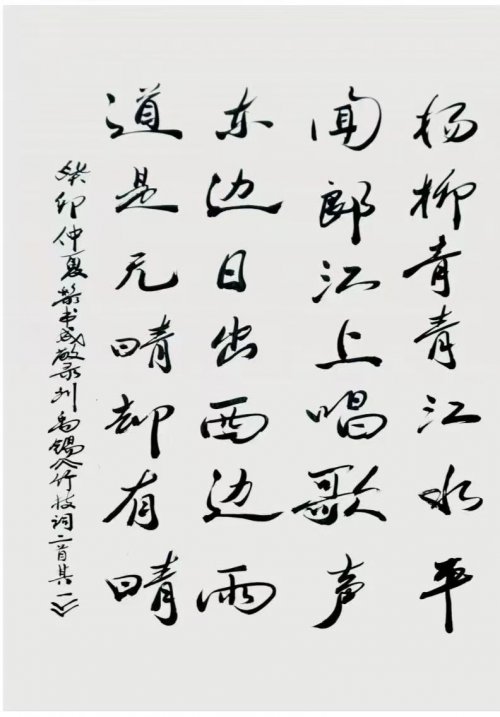 杨柳青青江水平
闻郎江上唱歌声
东边日出西边雨
道是无晴却有晴
癸卯仲夏 录刘禹锡《竹枝词二首其一》